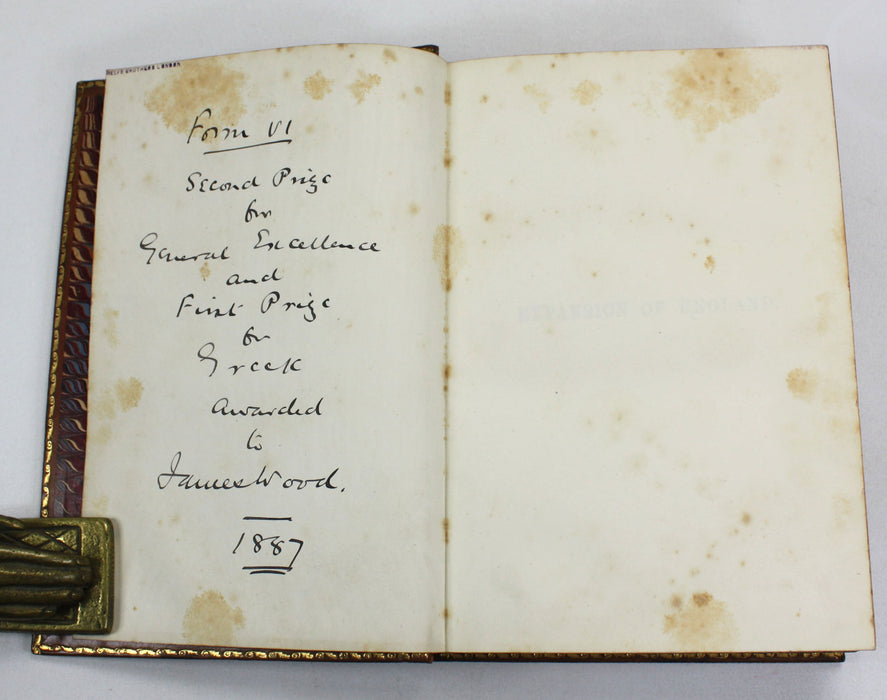 RELFE BROTHERS LONDON
Form VI
Second Prize
for
General Excellence
and
First Prize
for
Greek
awarded
to
James Wood.
1887
EXPANSION OF ENGLAND.